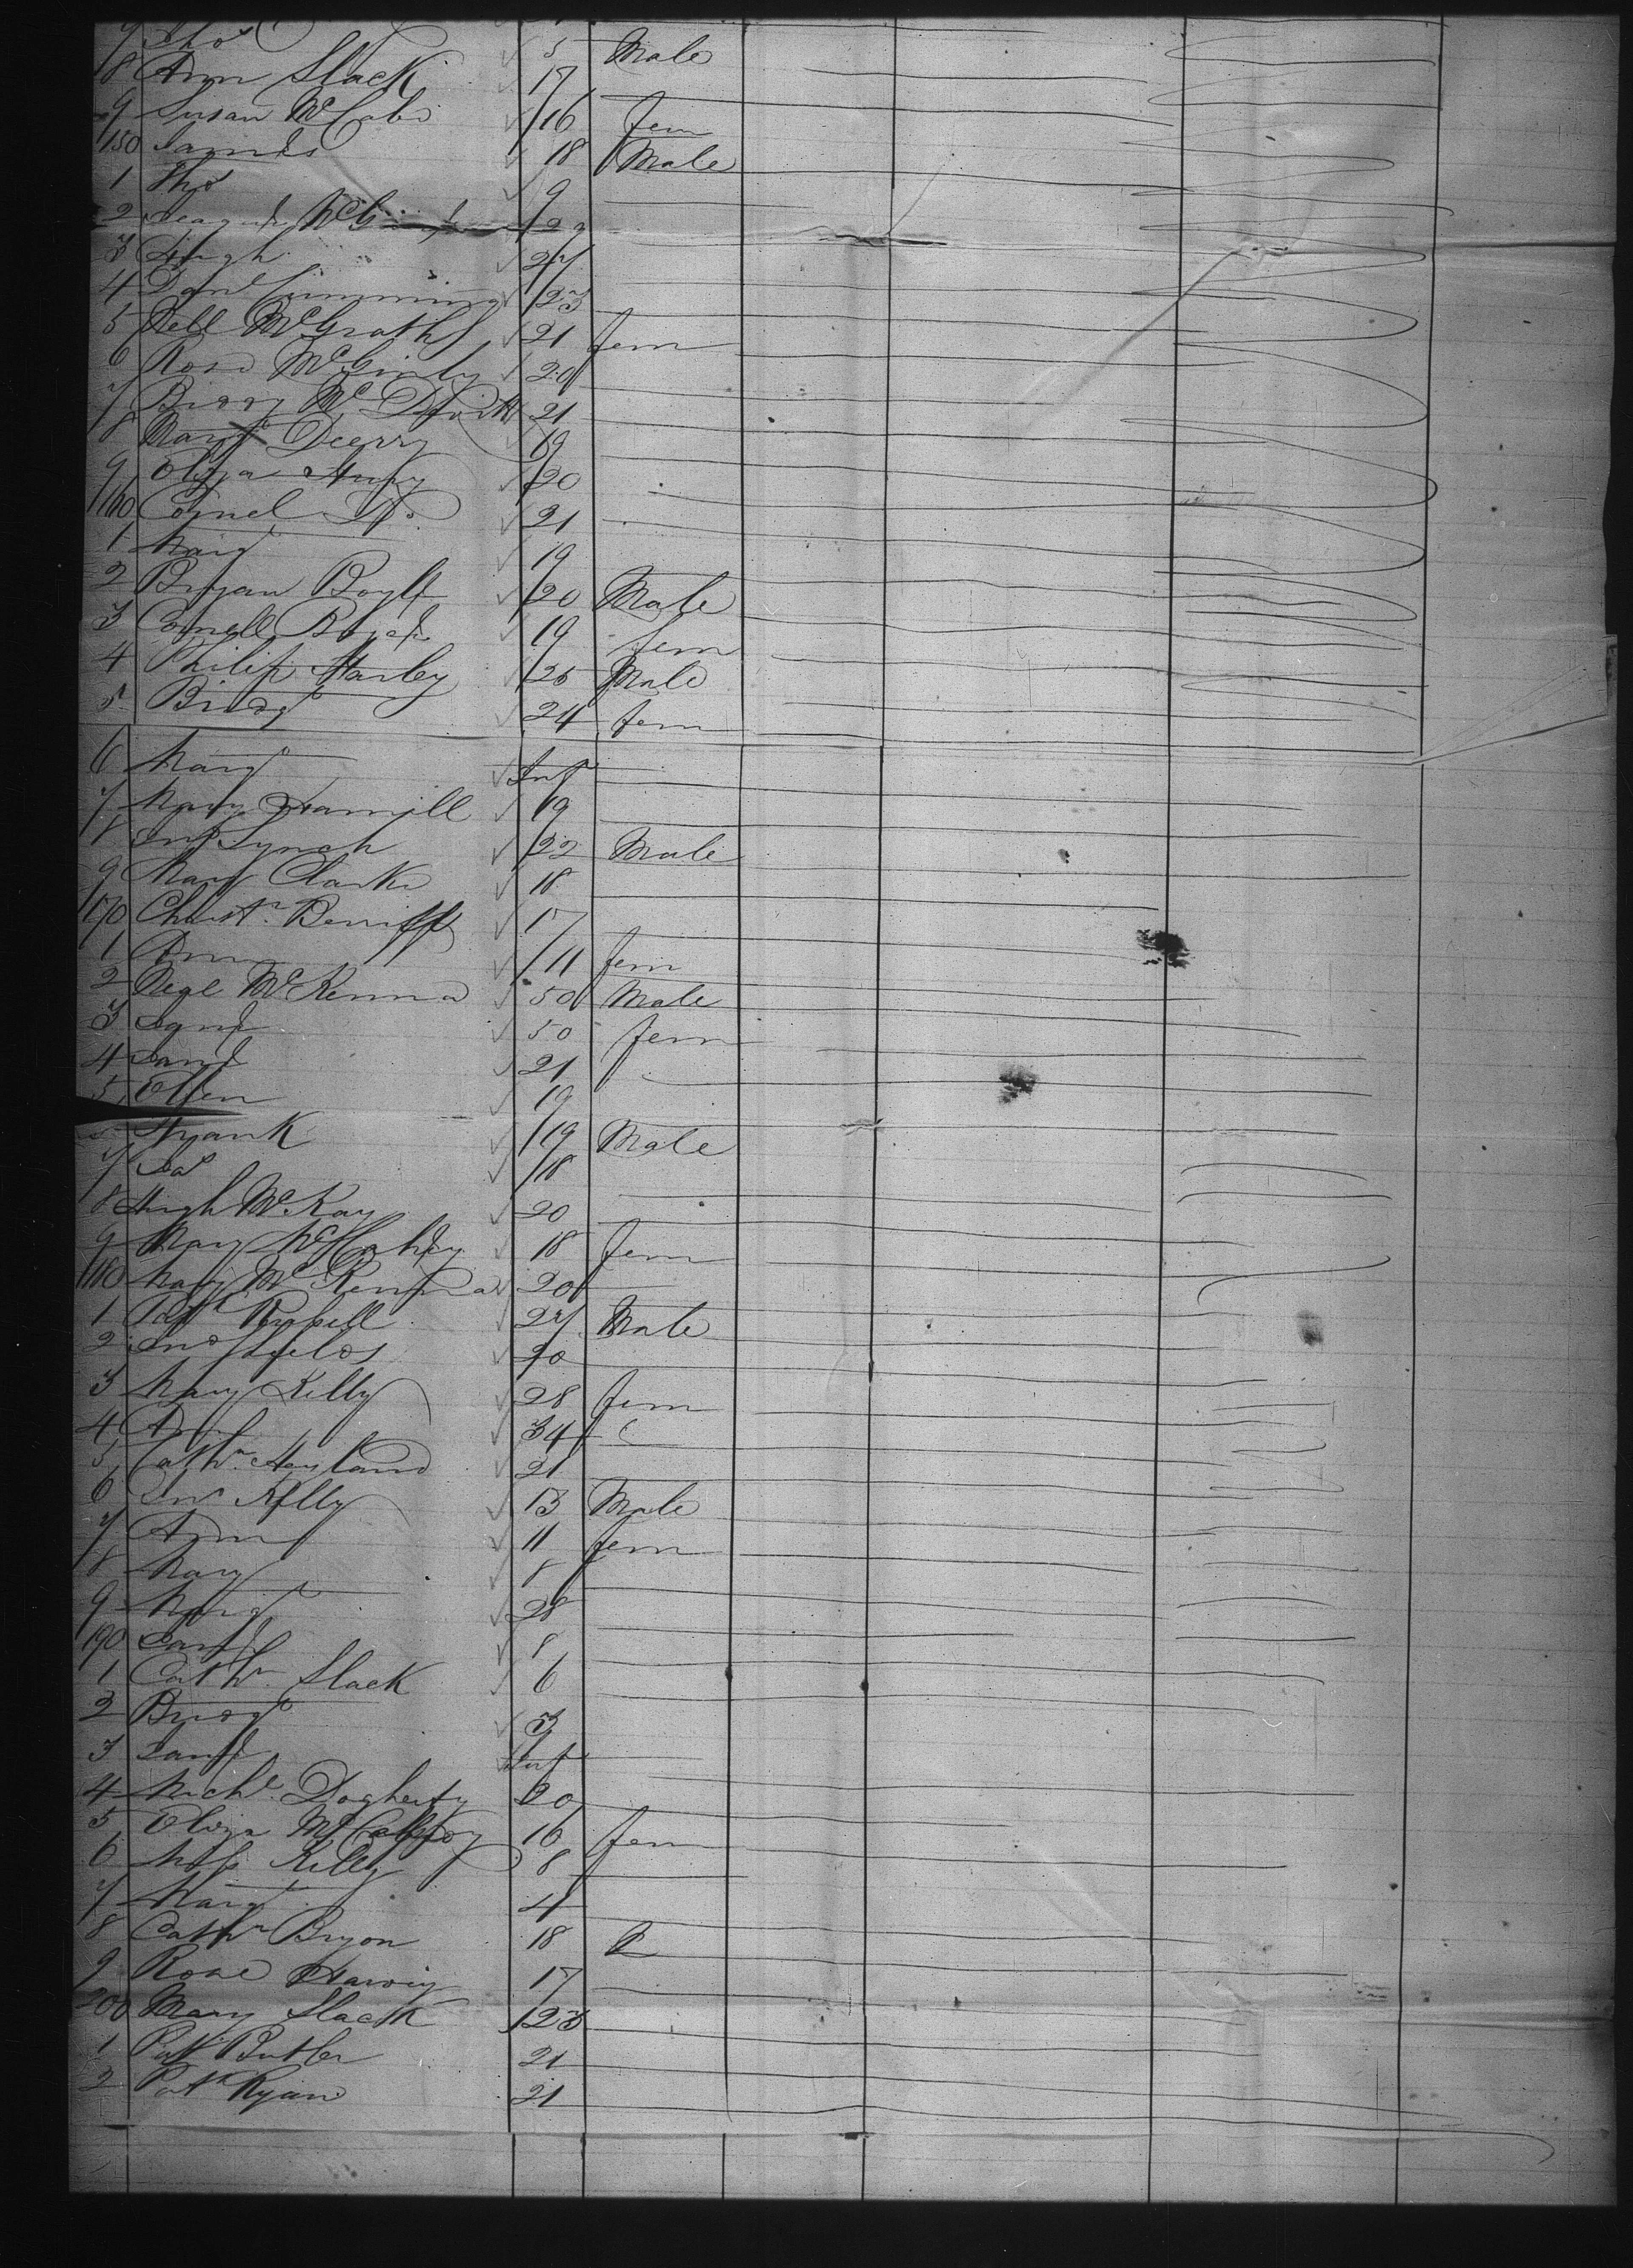 7 Thos 5 Male
8 Ann Slack 17
9 Susan McCabe 16 fem
150 James 18 Male
1 Thos 9
2 McG
3 Hugh 27
4 Danl Cummings 23
5 Nell McGrath 21 fem
6 Rose McGinly 20
7 Biddy McDevitt 21
8 Margt Deerry 19
9 Eliza 20
160 Connel Do 21
1 Margt 19
2 Bryan Boyle 20 Male
3 Connell 19 fem
4 Philip Harley 25 Male
5 Bridgt 24 fem
6 Margt Inft
7 Mary 19
8 Jno Lynch 22 Male
9 Mary Clarke 18
170 Christr 17
1 Ann 11 fem
2 Neal McKenna 50 Male
3 50 fem
4 Jane 21
5 Ellen 19
Frank 19 Male
7 Jas 18
8 Hugh McKay 20
9 Mary McCahey 18 fem
180 Mary McKenna 20
1 Patk Russell 27 Male
2 Jno Shields 20
3 Mary Killy 28 fem
4 Ann 34
5 Cathn Hayland 21
6 Jno Killy 13 Male
7 Ann 11 fem
8 Mary 8
9 Margt 28
190 Jane 8
1 Cathn Slack 6
2 Bridgt 3
3 Jane Inf
4 Michl Dogherty 20
5 Eliza 16 fem
6 Killy 8
7 Margt 4
8 Cathn Bryon 18
9 Rose 17
200 Mary Slack 23
1 Patk Butler 21
2 Patk Ryan 21